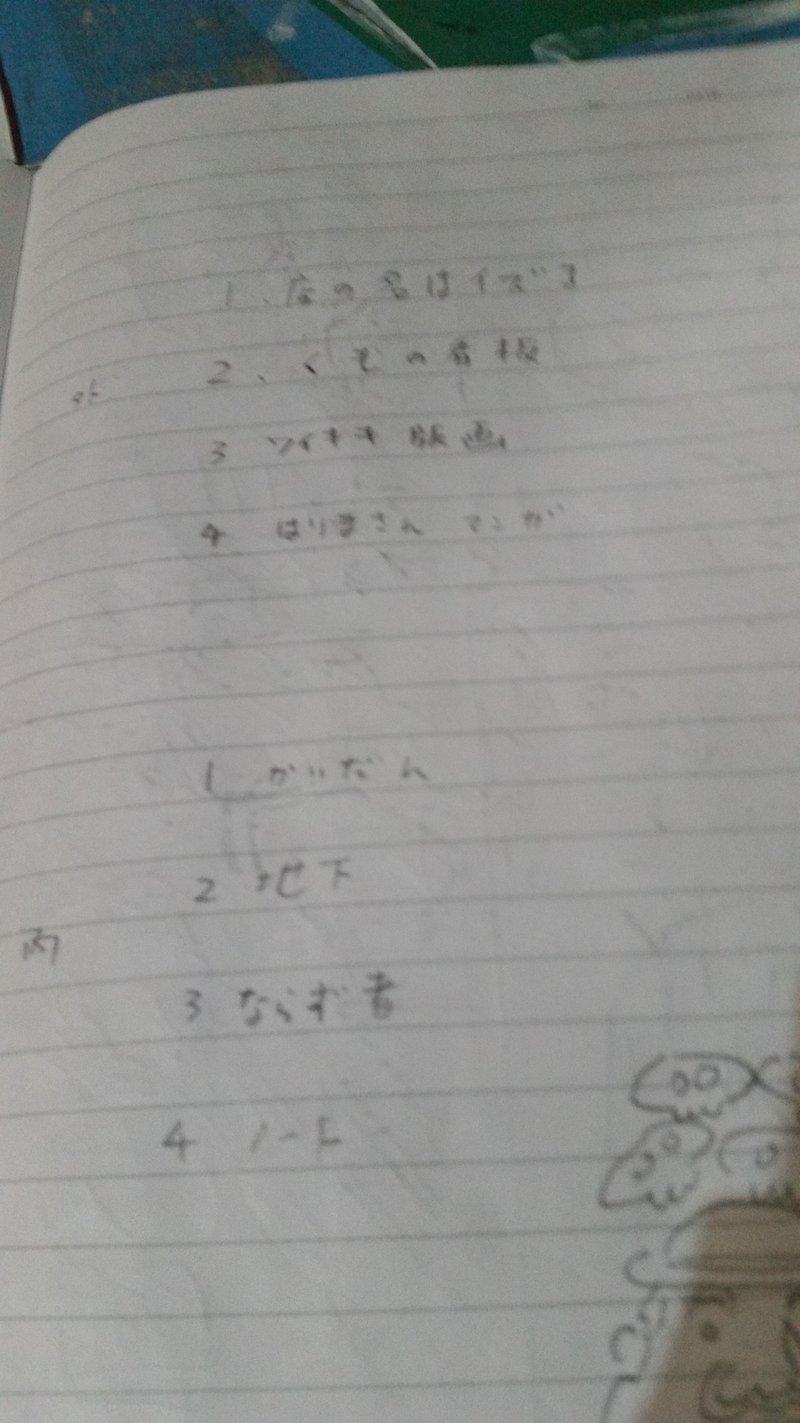 1、店の名はイズミ
2、くその看板
外
3 ワイキキ 版画
4 はりまさん マンガ
1 かいだん
2 地下
内
3 ならず者
4 ノート